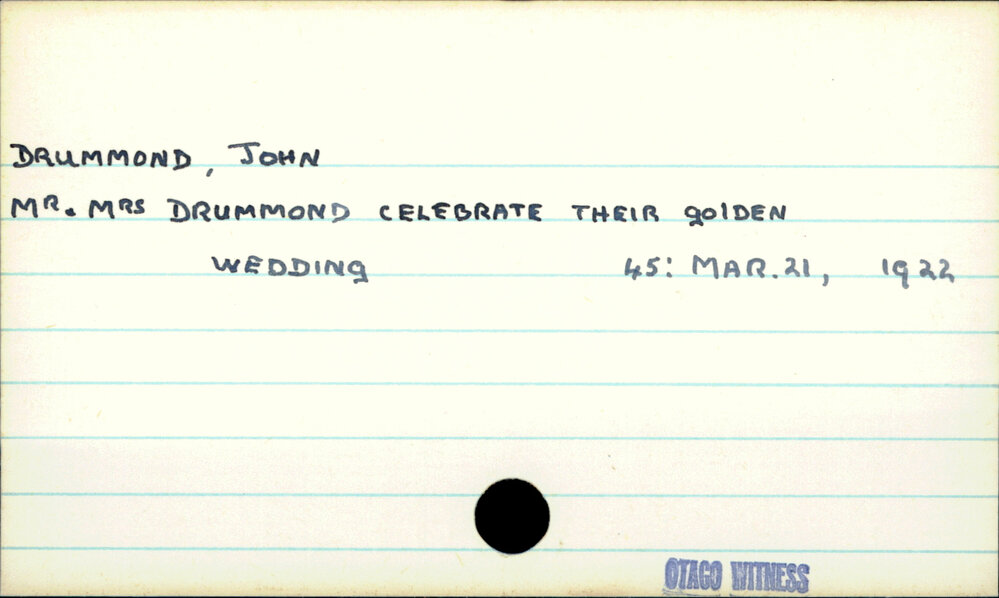 DRUMMOND, JOHN
MR. MRS DRUMMOND CELEBRATE THEIR golDEN
WEDDING 45: MAR. 21, 1922
OTAGO WITNESS